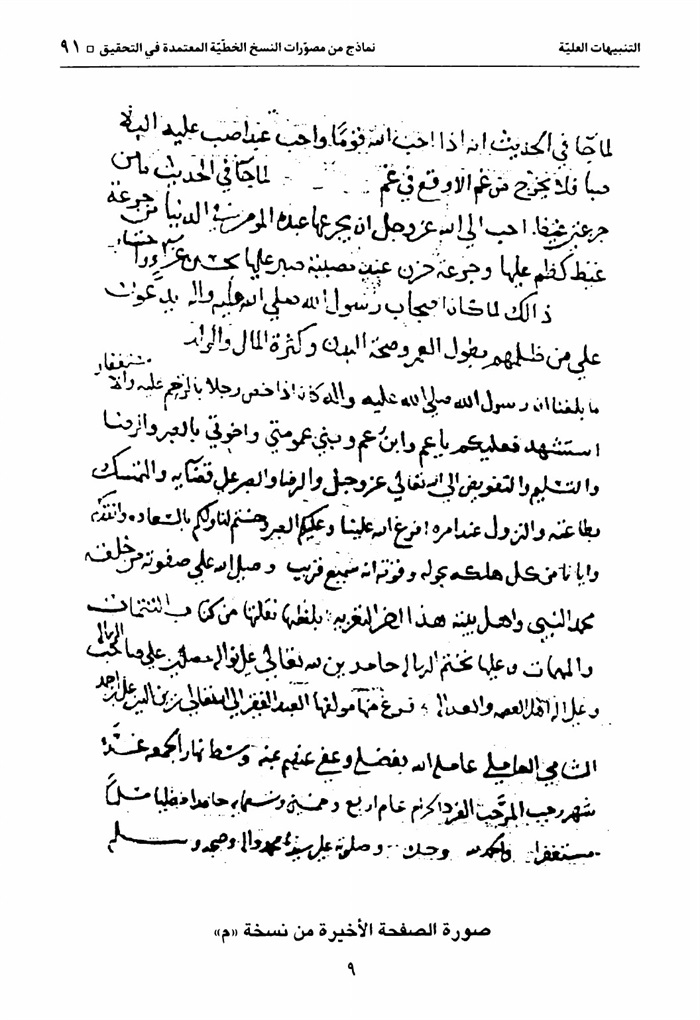 التنبيهات العليّة
نماذج من مصوّرات النسخ الخطّيّة المعتمدة في التحقيق □ ٩١
لما جا في الحديث انه اذا احب الله قوما واحب عبدا صب عليه البلا
صبا فلا يخرج من غم الا وقع في غم لما جا في الحديث ما من
جرعتين احب الى الله عز وجل ان يجرعها عبده المومن في الدنيا من جرعة
غيظ كظم عليها وجرعة حزن عند مصيبة صبر عليها بحسن عزاء واحتساب
ذالك لما كان اصحاب رسول الله صلى الله عليه واله يدعون
على من ظلمهم بطول العمر وصحة البدن وكثرة المال والولد
ما بلغنا ان رسول الله صلى الله عليه واله كان اذا خص رجلا بالترحم عليه والاستغفار
استشهد فعليكم يا عم وابن عم وبني عمومتي واخوتي بالصبر والرضا
والتسليم والتفويض الى الله تعالى عز وجل والرضا والصبر على قضايه والتمسك
بطاعته والنزول عند امره افرغ الله علينا وعليكم الصبر وختم لنا ولكم بالسعاده وانقذكم
وايانا من كل هلكه بحوله وقوته انه سميع قريب وصلى الله على صفوته من خلقه
محمد النبي واهل بيته هذا اخر التعزيه بلفظها نقلتها من كتاب التتمات
والمهمات وعليها نختم الرساله حامدين لله تعالى على نواله مصلين على صاحب الرساله
وعلى اله اهل العصمه والعداله فرغ منها مولفها العبد الفقير الى الله تعالى زين الدين علي بن احمد
الشامي العاملي عامله الله بفضله وعفى عنهم بمنه وسط نهار الجمعه غرة
شهر رجب المرجب الفرد الحرام عام اربع وخمسين وتسعمايه حامدا مصليا مسلما
مستغفرا والحمد لله وحده وصلوته على سيدنا محمد واله وصحبه وسلم
صورة الصفحة الأخيرة من نسخة «م»
٩